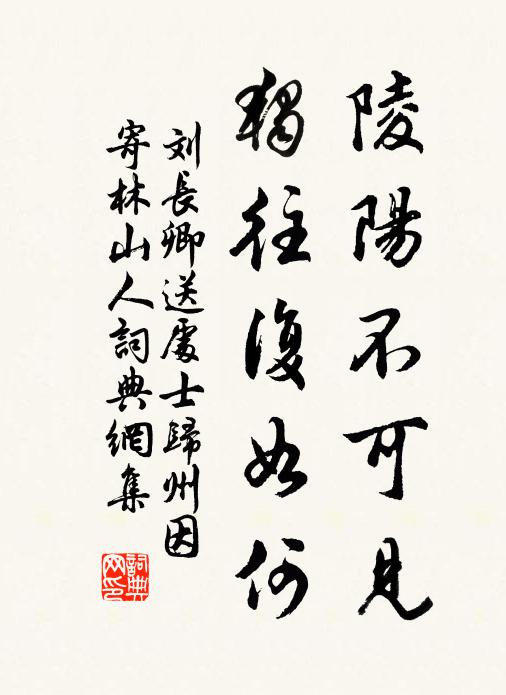 陵陽不可見
獨往復如何
刘長卿送處士歸州因
寄林山人詞典網集
詞典
网印